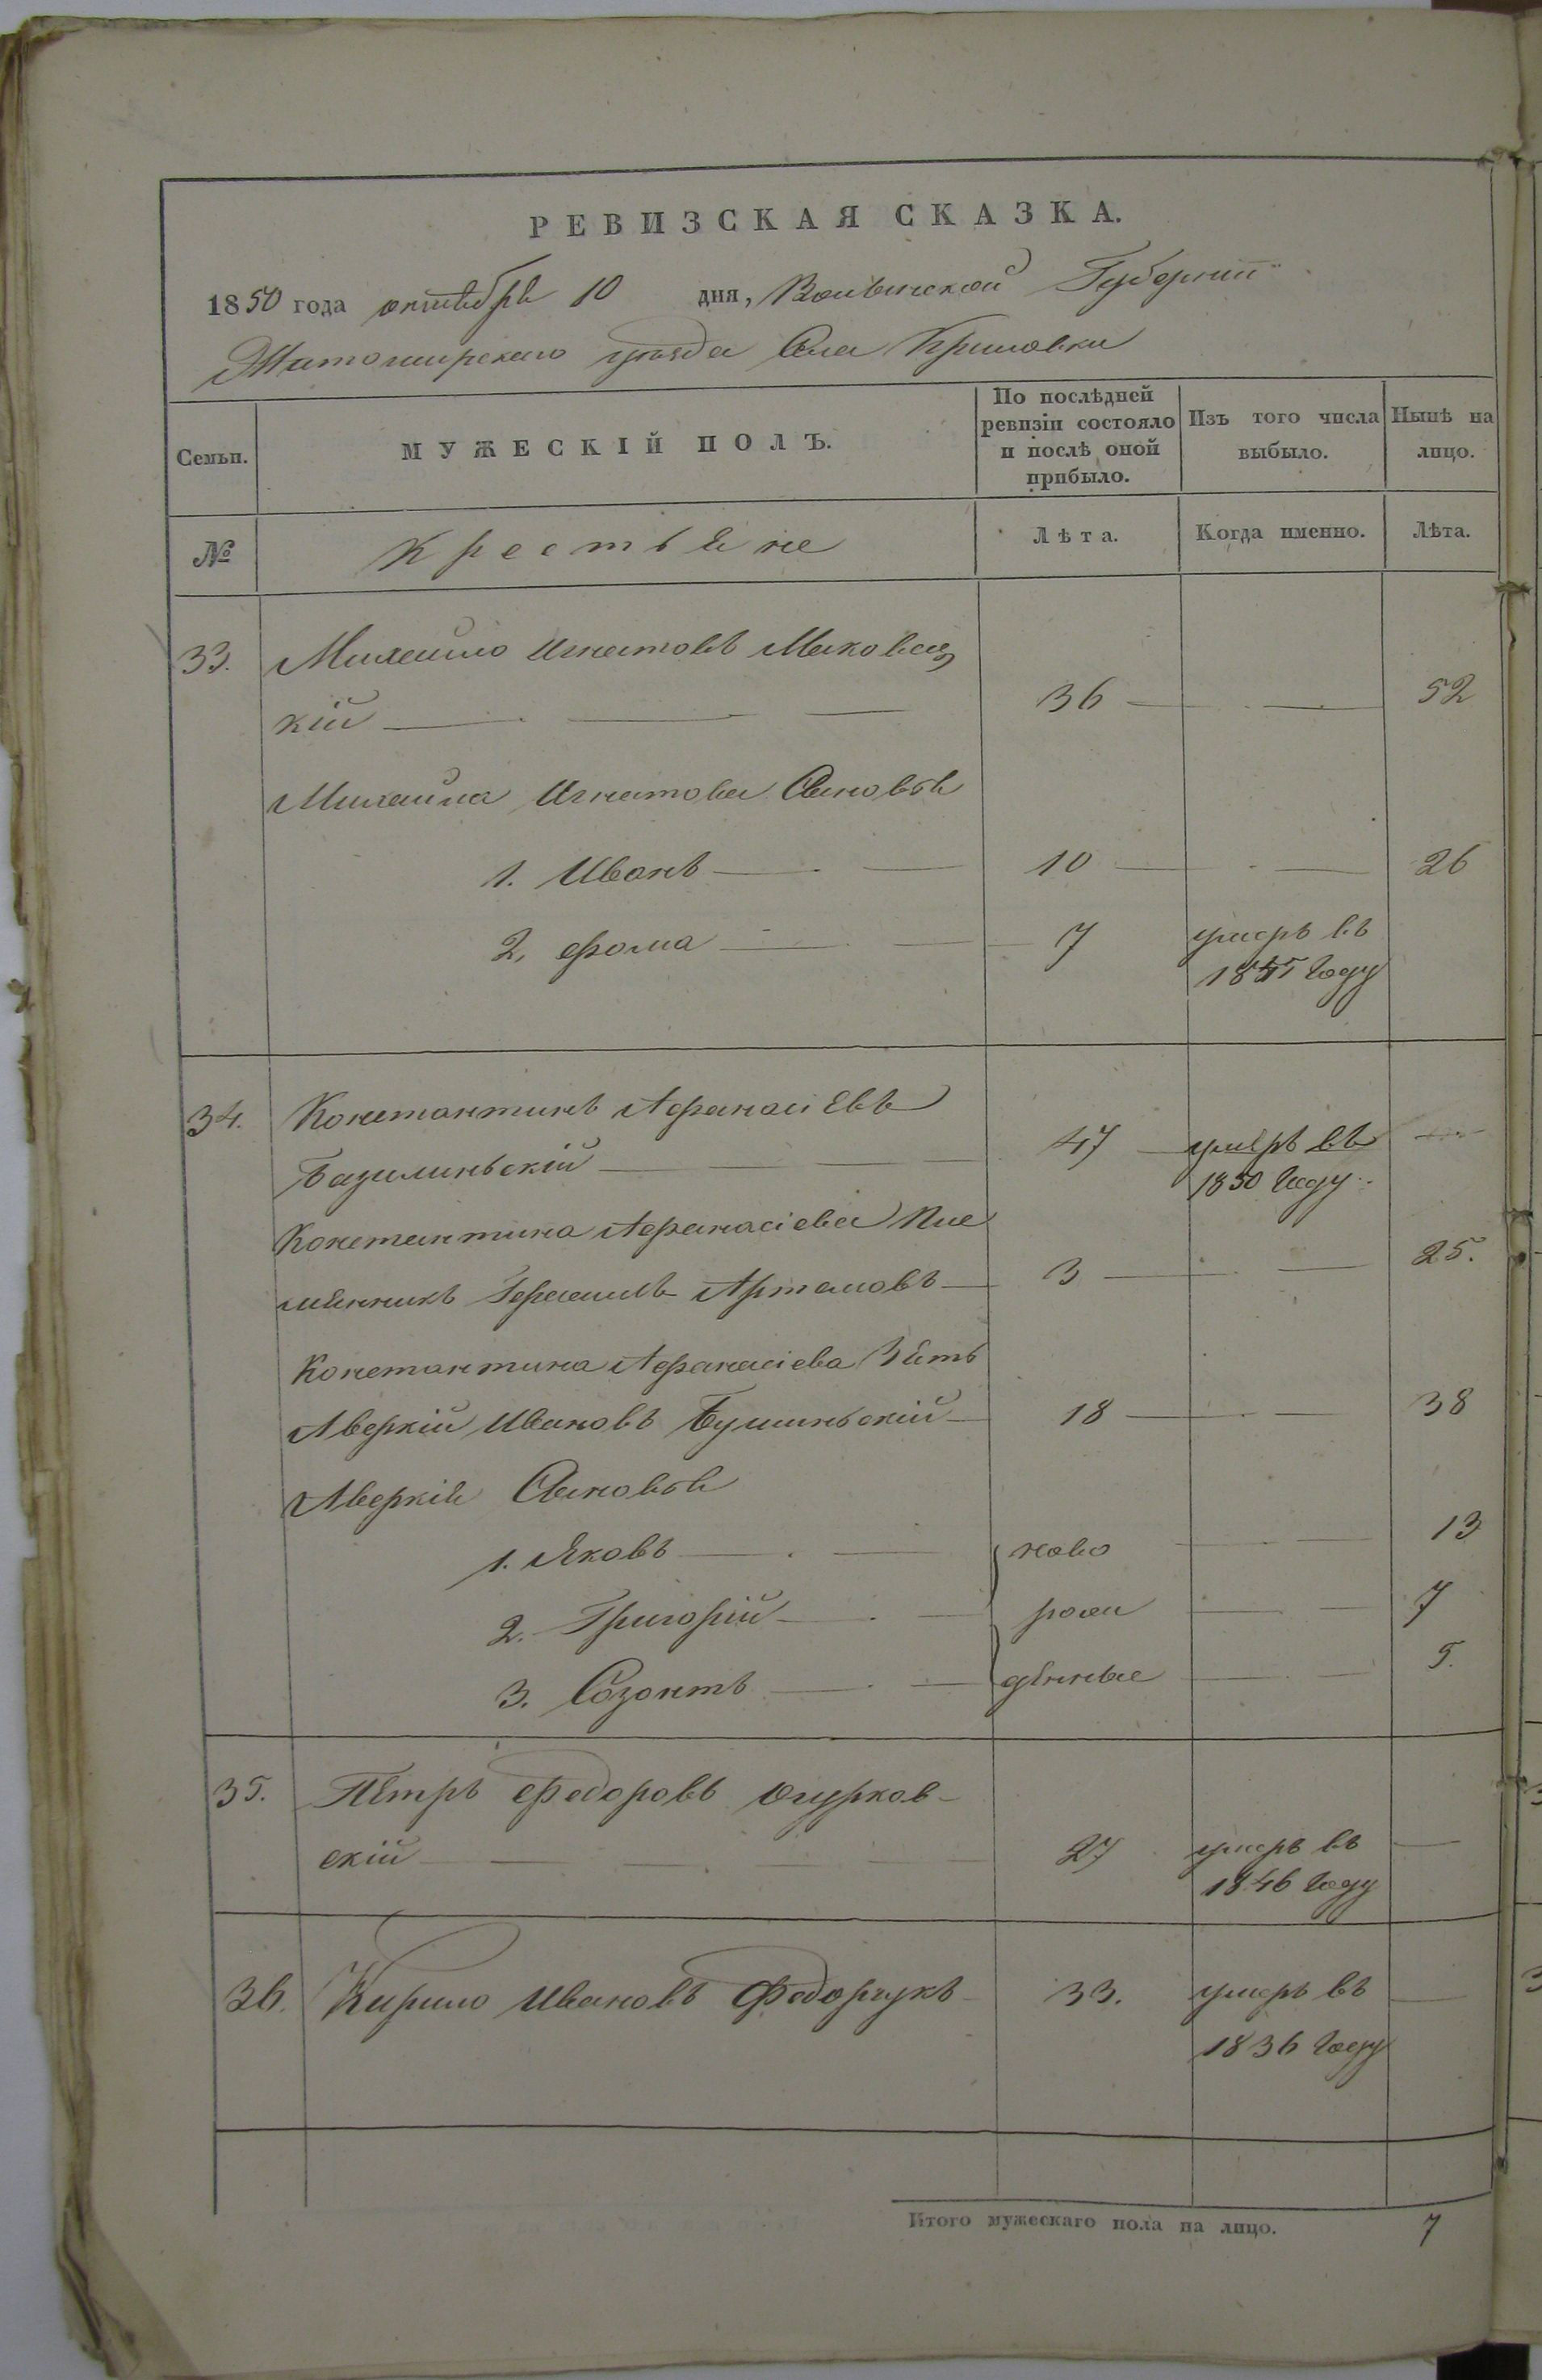 РЕВИЗСКАЯ СКАЗКА.
1850 года октября 10 дня, Волынской Губернии
Житомирскаго уѣзда Села Крыловки
Семьи. МУЖЕСКІЙ ПОЛЪ. По послѣдней ревизіи состояло и послѣ оной прибыло. Изъ того числа выбыло. Нынѣ на лицо.
№ Крестьяне Лѣта. Когда именно. Лѣта.
33. Михайло Игнатовъ Маковец
кій 36 52
Михайла Игнатова Сыновья
1. Иванъ 10 26
2. Фома 7 умеръ въ
1845 году
34. Константинъ Афанасіевъ
Базилиньскій 47 умеръ въ
1850 году
Константина Афанасіева Пле
мянникъ Герасимъ Артемовъ 3 25.
Константина Афанасіева Зять
Аверкій Ивановъ Бушиньскій 18 38
Аверкія Сыновья
1. Яковъ ново 13
2. Григорій рож 7
3. Созонтъ денные 5.
35. Петръ Федоровъ Огурков-
скій 27 умеръ въ
1846 году
36. Кирило Ивановъ Федорчукъ 33. умеръ въ
1836 году
Итого мужескаго пола на лицо. 7